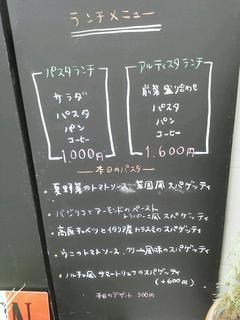 ランチメニュー
パスタランチ
サラダ
パスタ
パン
コーヒー
1,000円
アルティスタランチ
前菜盛り合わせ
パスタ
パン
コーヒー
1.600円
本日のパスタ
・夏野菜のトマトソース 菜園風 スパゲッティ
・バジリコとアーモンドのペースト
トラパーニ風 スパゲッティ
・高原キャベツとイタリア産カラスミのスパゲッティ
・ウニのトマトソース、クリーム風味のスパゲッティ
・ノルチャ風 サマートリュフのスパゲッティ
(+600円)
本日のデザート 300円
N